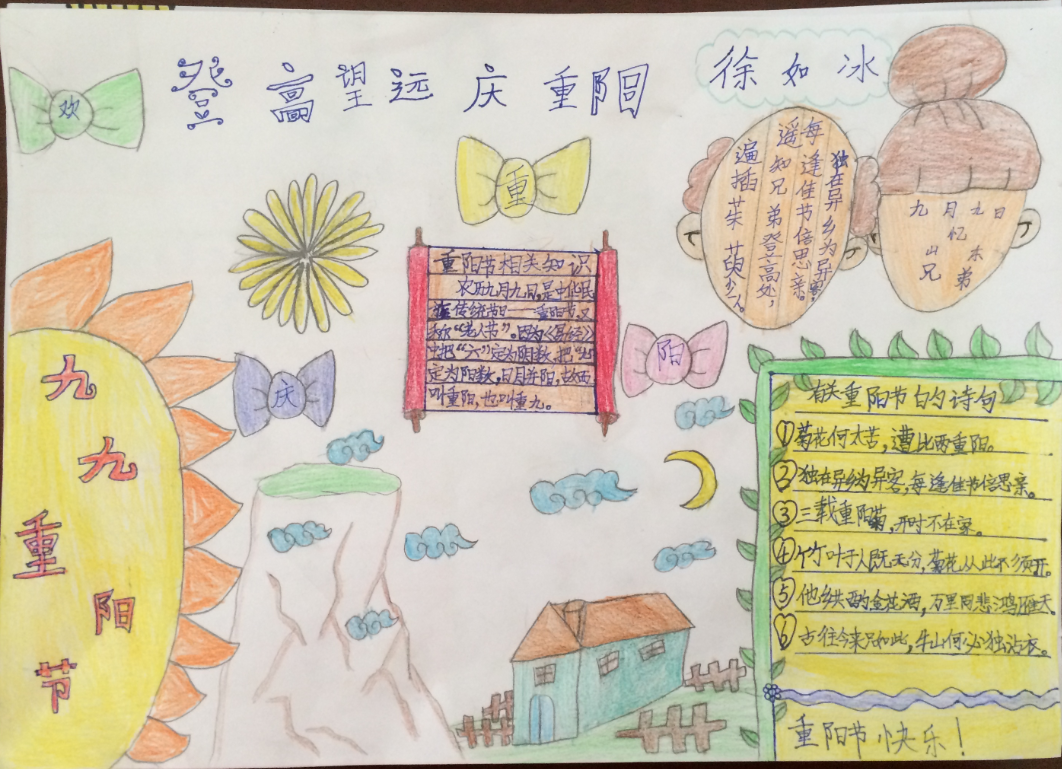 登高望远庆重阳
徐如冰
欢
重
庆
阳
九
九
重
阳
节
重阳节相关知识
农历九月九日,是中华民
族传统节日——重阳节,又
称“老人节”。因为《易经》
中把“六”定为阴数,把“九”
定为阳数,日月并阳,故而
叫重阳,也叫重九。
独在异乡为异客,
每逢佳节倍思亲。
遥知兄弟登高处,
遍插茱萸少一人。
九月九日
忆
山东
兄弟
有关重阳节的诗句
①菊花何太苦,遭比两重阳。
②独在异乡为异客,每逢佳节倍思亲。
③三载重阳菊,开时不在家。
④竹叶于人既无分,菊花从此不须开。
⑤他乡共酌金花酒,万里同悲鸿雁天。
⑥古往今来只如此,牛山何必独沾衣。
重阳节快乐!